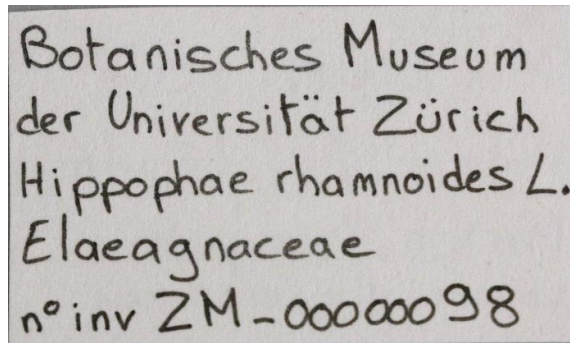 Botanisches Museum
der Universität Zürich
Hippophae rhamnoides L.
Elaeagnaceae
n° inv ZM-00000098